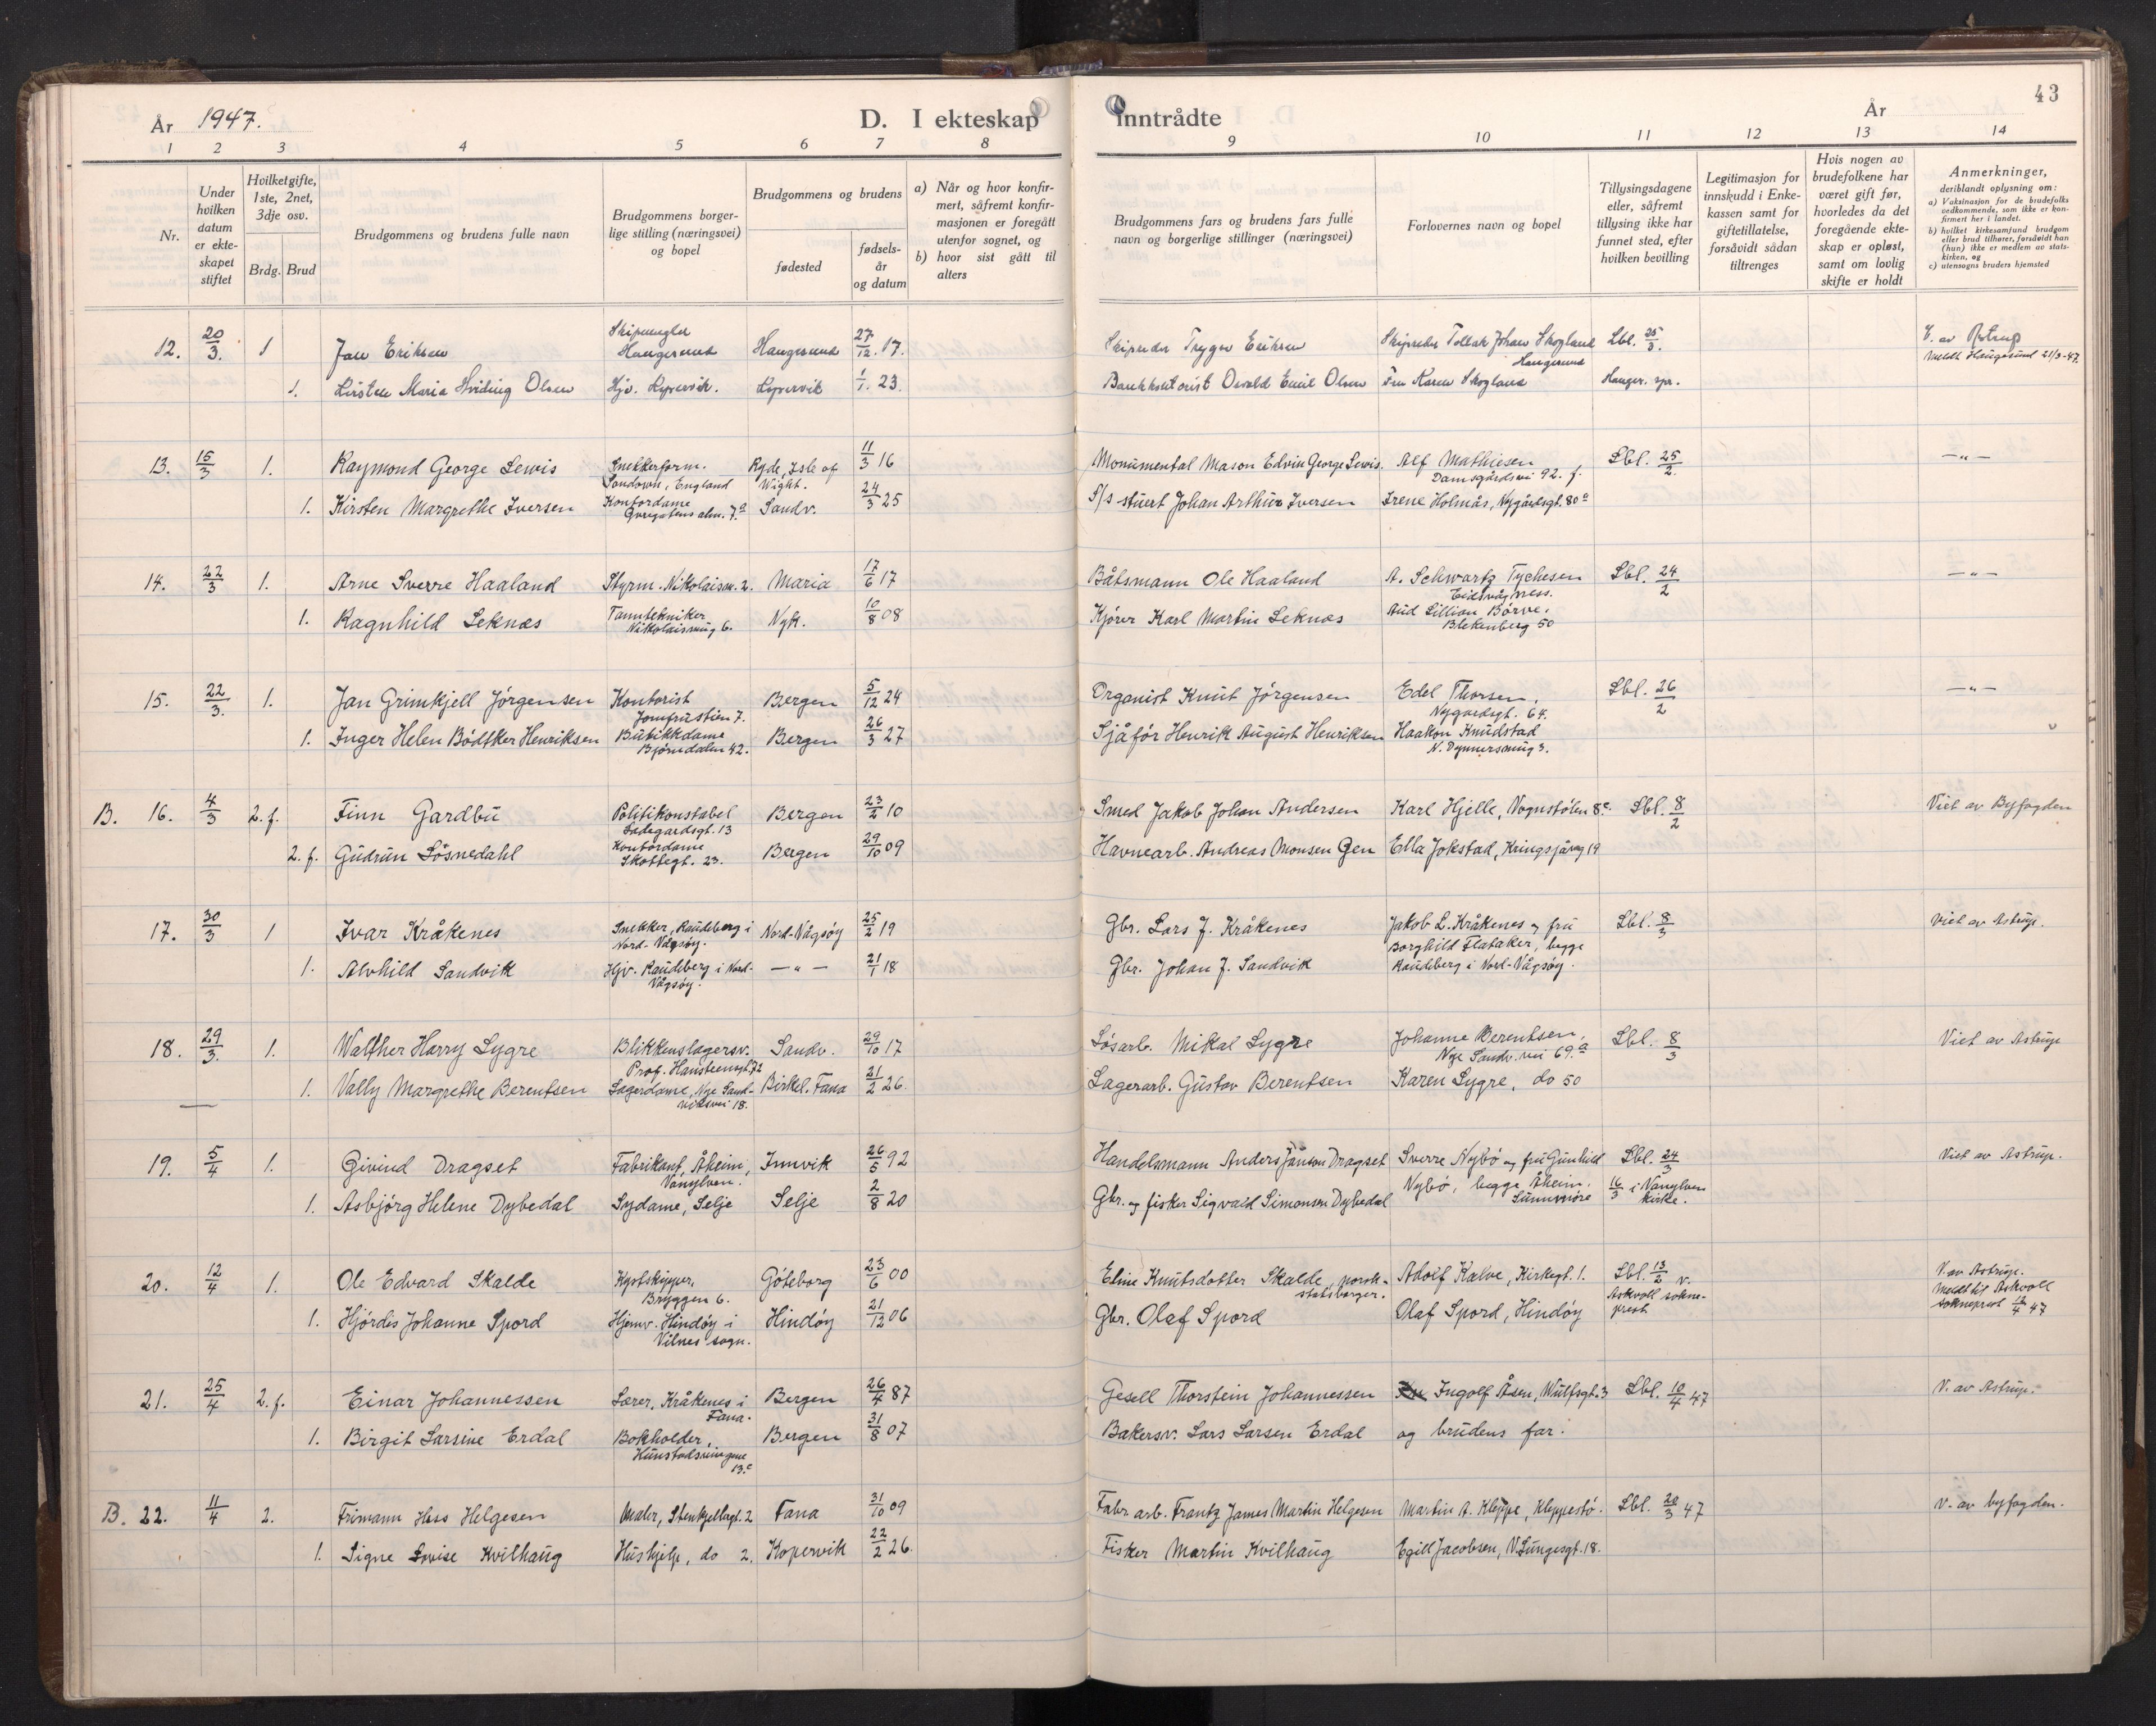 43
År 1947. D. I ekteskap inntrådte År
1 2 3 4 5 6 7 8 9 10 11 12 13 14
Nr.
Under hvilken datum er ekteskapet stiftet
Hvilket gifte, 1ste, 2net, 3dje osv.
Brdg. Brud
Brudgommens og brudens fulle navn
Brudgommens borgerlige stilling (næringsvei) og bopel
Brudgommens og brudens
fødested
fødselsår og datum
a) Når og hvor konfirmert, såfremt konfirmasjonen er foregått utenfor sognet, og
b) hvor sist gått til alters
Brudgommens fars og brudens fars fulle navn og borgerlige stillinger (næringsvei)
Forlovernes navn og bopel
Tillysingsdagene eller, såfremt tillysing ikke har funnet sted, efter hvilken bevilling
Legitimasjon for innskudd i Enkekassen samt for giftetillatelse, forsåvidt sådan tiltrenges
Hvis nogen av brudefolkene har været gift før, hvorledes da det foregående ekteskap er opløst, samt om lovlig skifte er holdt
Anmerkninger, deriblandt oplysning om:
a) Vaksinasjon for de brudefolks vedkommende, som ikke er konfirmert her i landet.
b) hvilket kirkesamfund brudgom eller brud tilhører, forsåvidt han (hun) ikke er medlem av statskirken, og
c) utensogns bruders hjemsted
12. 20/3. 1 Jan Eriksen Skipsmegler Haugesund Haugesund 27/12. 17. Skipsreder Trygve Eriksen Skipsreder Tollak Johan Skogland Haugesund Lbl. 25/3. V. av Astrup
Meldt Haugesund 21/3-47.
1. Kirsten Maria Hviding Olsen Hjv. Kopervik. Kopervik 1/1. 23. Bankkontorist Osvald Emil Olsen Fru Karen Skogland Hauges. spr.
13. 15/3 1. Raymond George Lewis Snekkerform. Sandown, England Ryde, Isle of Wight. 11/3 16 Monumental Mason Edvin George Lewis. Alf Mathiesen Damsgårdsvei 92. f. Lbl. 25/2. —"—
1. Kirsten Margrethe Iversen Kontordame Sandv. 24/3 25 S/s stuert Johan Arthur Iversen Irene Holmås, Nygårdsgt. 80a
14. 22/3 1. Arne Sverre Haaland Styrm. Nikolaism. 2. Maria 17/6 17 Båtsmann Ole Haaland A. Schwartz Tychesen Eidsvågness. Lbl. 24/2 —"—
1. Ragnhild Seknæs Tanntekniker Nikolaismug 6. Nyk. 10/8 08 Kjører Karl Martin Seknæs Aud Lillian Börve. Blekenberg 50
15. 22/3. 1. Jan Grimkjell Jörgensen Kontorist Jomfrustien 7. Bergen 5/12 24 Organist Knut Jörgensen Edel Thorsen, Nygardsgt. 64. Lbl. 26/2 —"—
1. Inger Helen Bödtker Henriksen Butikkdame Bjørndalen 42. Bergen 26/3 27 Sjåfør Henrik August Henriksen Haakon Knudstad N. Dynnersmug 3.
B. 16. 4/3 2. f. Finn Gardbu Politikonstabel Ladegardsgt. 13 Bergen 23/2 10 Smed Jakob Johan Andersen Karl Hjelle, Vognstølen 8c. Lbl. 8/2 Viet av Byfogden
2. f. Gudrun Lösnedahl Kontordame Skottegt. 23. Bergen 29/10 09 Havnearb. Andreas Monsen Gen Ella Jokstad, Kringsjåveg 19
17. 30/3 1 Ivar Kråkenes Snekker, Raudeberg i Nord-Vågsøy. Nord-Vågsøy 25/2 19 Gbr. Lars J. Kråkenes Jakob L. Kråkenes og fru Lbl. 8/3 Viet av Astrup.
1. Alvhild Sandvik Hjv. Raudeberg i Nord-Vågsøy. —"— 21/1 18 Gbr. Johan J. Sandvik Borghild Flataker, begge Raudeberg i Nord-Vågsøy.
18. 29/3. 1. Walther Harry Lygre Blikkenslagersv. Prof. Hansteensgt. 72 Sandv. 29/10 17 Løsarb. Mikal Lygre Johanne Berentsen, Nye Sandv. vei 69.a Lbl. 8/3 Viet av Astrup
1. Vally Margrethe Berentsen Lagerdame, Nye Sandviksvei 18. Birkel. Fana 21/2 26. Lagerarb. Gustav Berentsen Karen Lygre, do 50
19. 5/4 1. Eivind Dragset Fabrikant, Åheim, Vanylven. Innvik 26/5 92 Handelsmann Anders Jånson Dragset Sverre Nybö og fru Gunhild Lbl. 24/3 Viet av Astrup.
1. Asbjörg Helene Dybedal Sydame, Selje Selje 2/8 20 Gbr. og fisker Sigvald Simonson Dybedal Nybö, begge Åheim. Sunnmöre 16/3 i Vanylven kirke.
20. 12/4 1. Ole Edvard Skalde Kystskipper, Bryggen 6. Göteborg 23/6 00 Eline Knutsdotter Skalde, norsk statsborger. Adolf Kalve, Kirkegt. 1. Lbl. 13/2 v. Askvoll sokneprest V. av Astrup.
Meldt til Askvoll sokneprest 12/4 47
1. Hjördis Johanne Spord Hjemv. Hindöy i Vilnes sogn. Hindöy 21/12 06 Gbr. Olaf Spord Olaf Spord, Hindöy
21. 25/4 2. f. Einar Johannessen Lærer, Kråkenes i Fana. Bergen 26/4 87 Gesell Thorstein Johannessen Ingolf Åsen, Wulfsgt. 3 Lbl. 10/4 47 V. av Astrup.
1. Birgit Larsine Erdal Bokholder, 13.c Bergen 31/8 07 Bakersv. Lars Larsen Erdal og brudens far.
B. 22. 11/4 2. Frimann Hess Helgesen Maler, Stenkjellagt. 2 Fana 31/10 09 Fabr arb. Frantz James Martin Helgesen Martin A. Kleppe, Kleppestö. Lbl. 20/3 47 V. av byfogden.
1. Signe Lovise Kvilhaug Hushjelp, do 2. Kopervik 22/2 26. Fisker Martin Kvilhaug Egill Jacobsen, V. Lungesgt. 18.